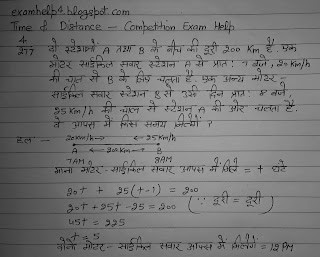 examhelp4.blogspot.com
Time & Distance – Competition Exam Help
4
277 दो स्टेशनों A तथा B के बीच की दूरी 200 Km है. एक
मोटर साईकिल सवार स्टेशन A से प्रात: 7 बजे, 20 Km/h
की चाल से B के लिए चलता है. एक अन्य मोटर-
साईकिल सवार स्टेशन B से उसी दिन प्रात: 8 बजे,
25 Km/h की चाल से स्टेशन A की ओर चलता है.
वे आपस में किस समय मिलेंगे ?
हल – 20 Km/h → ← 25 Km/h
A ← 200 Km → B
7AM 8AM
माना मोटर-साईकिल सवार आपस में मिले = t घंटे
20t + 25(t-1) = 200
20t + 25t - 25 = 200 (∵ दूरी = दूरी)
45t = 225
t = 5
दोनो मोटर-साईकिल सवार आपस में मिलेंगे = 12 PM